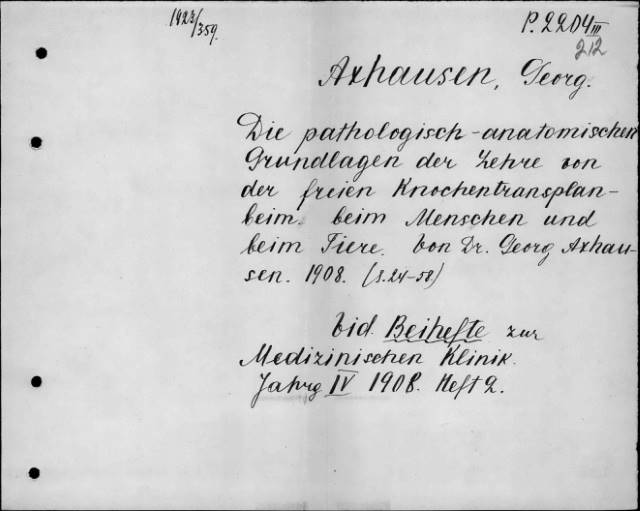 1923/359.
P. 2204 III
212
Axhausen, Georg.
Die pathologisch-anatomischen
Grundlagen der Lehre von
der freien Knochentransplan-
beim beim Menschen und
beim Tiere. Von Dr. Georg Axhau-
sen. 1908. (S. 24-58)
Vid. Beihefte zur
Medizinischen Klinik.
Jahrg IV 1908. Heft 2.